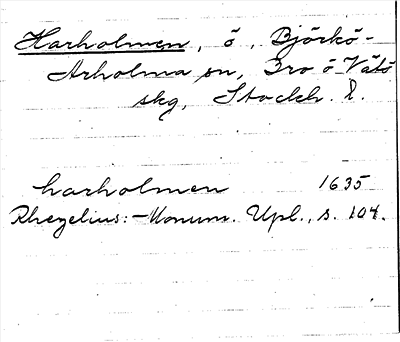 Harholmen, ö, Björkö-
Arholma sn, Bro o Vätö
skg, Stockh. l.
harholmen 1635
Rhezelius: - Monum. Upl., s. 104.